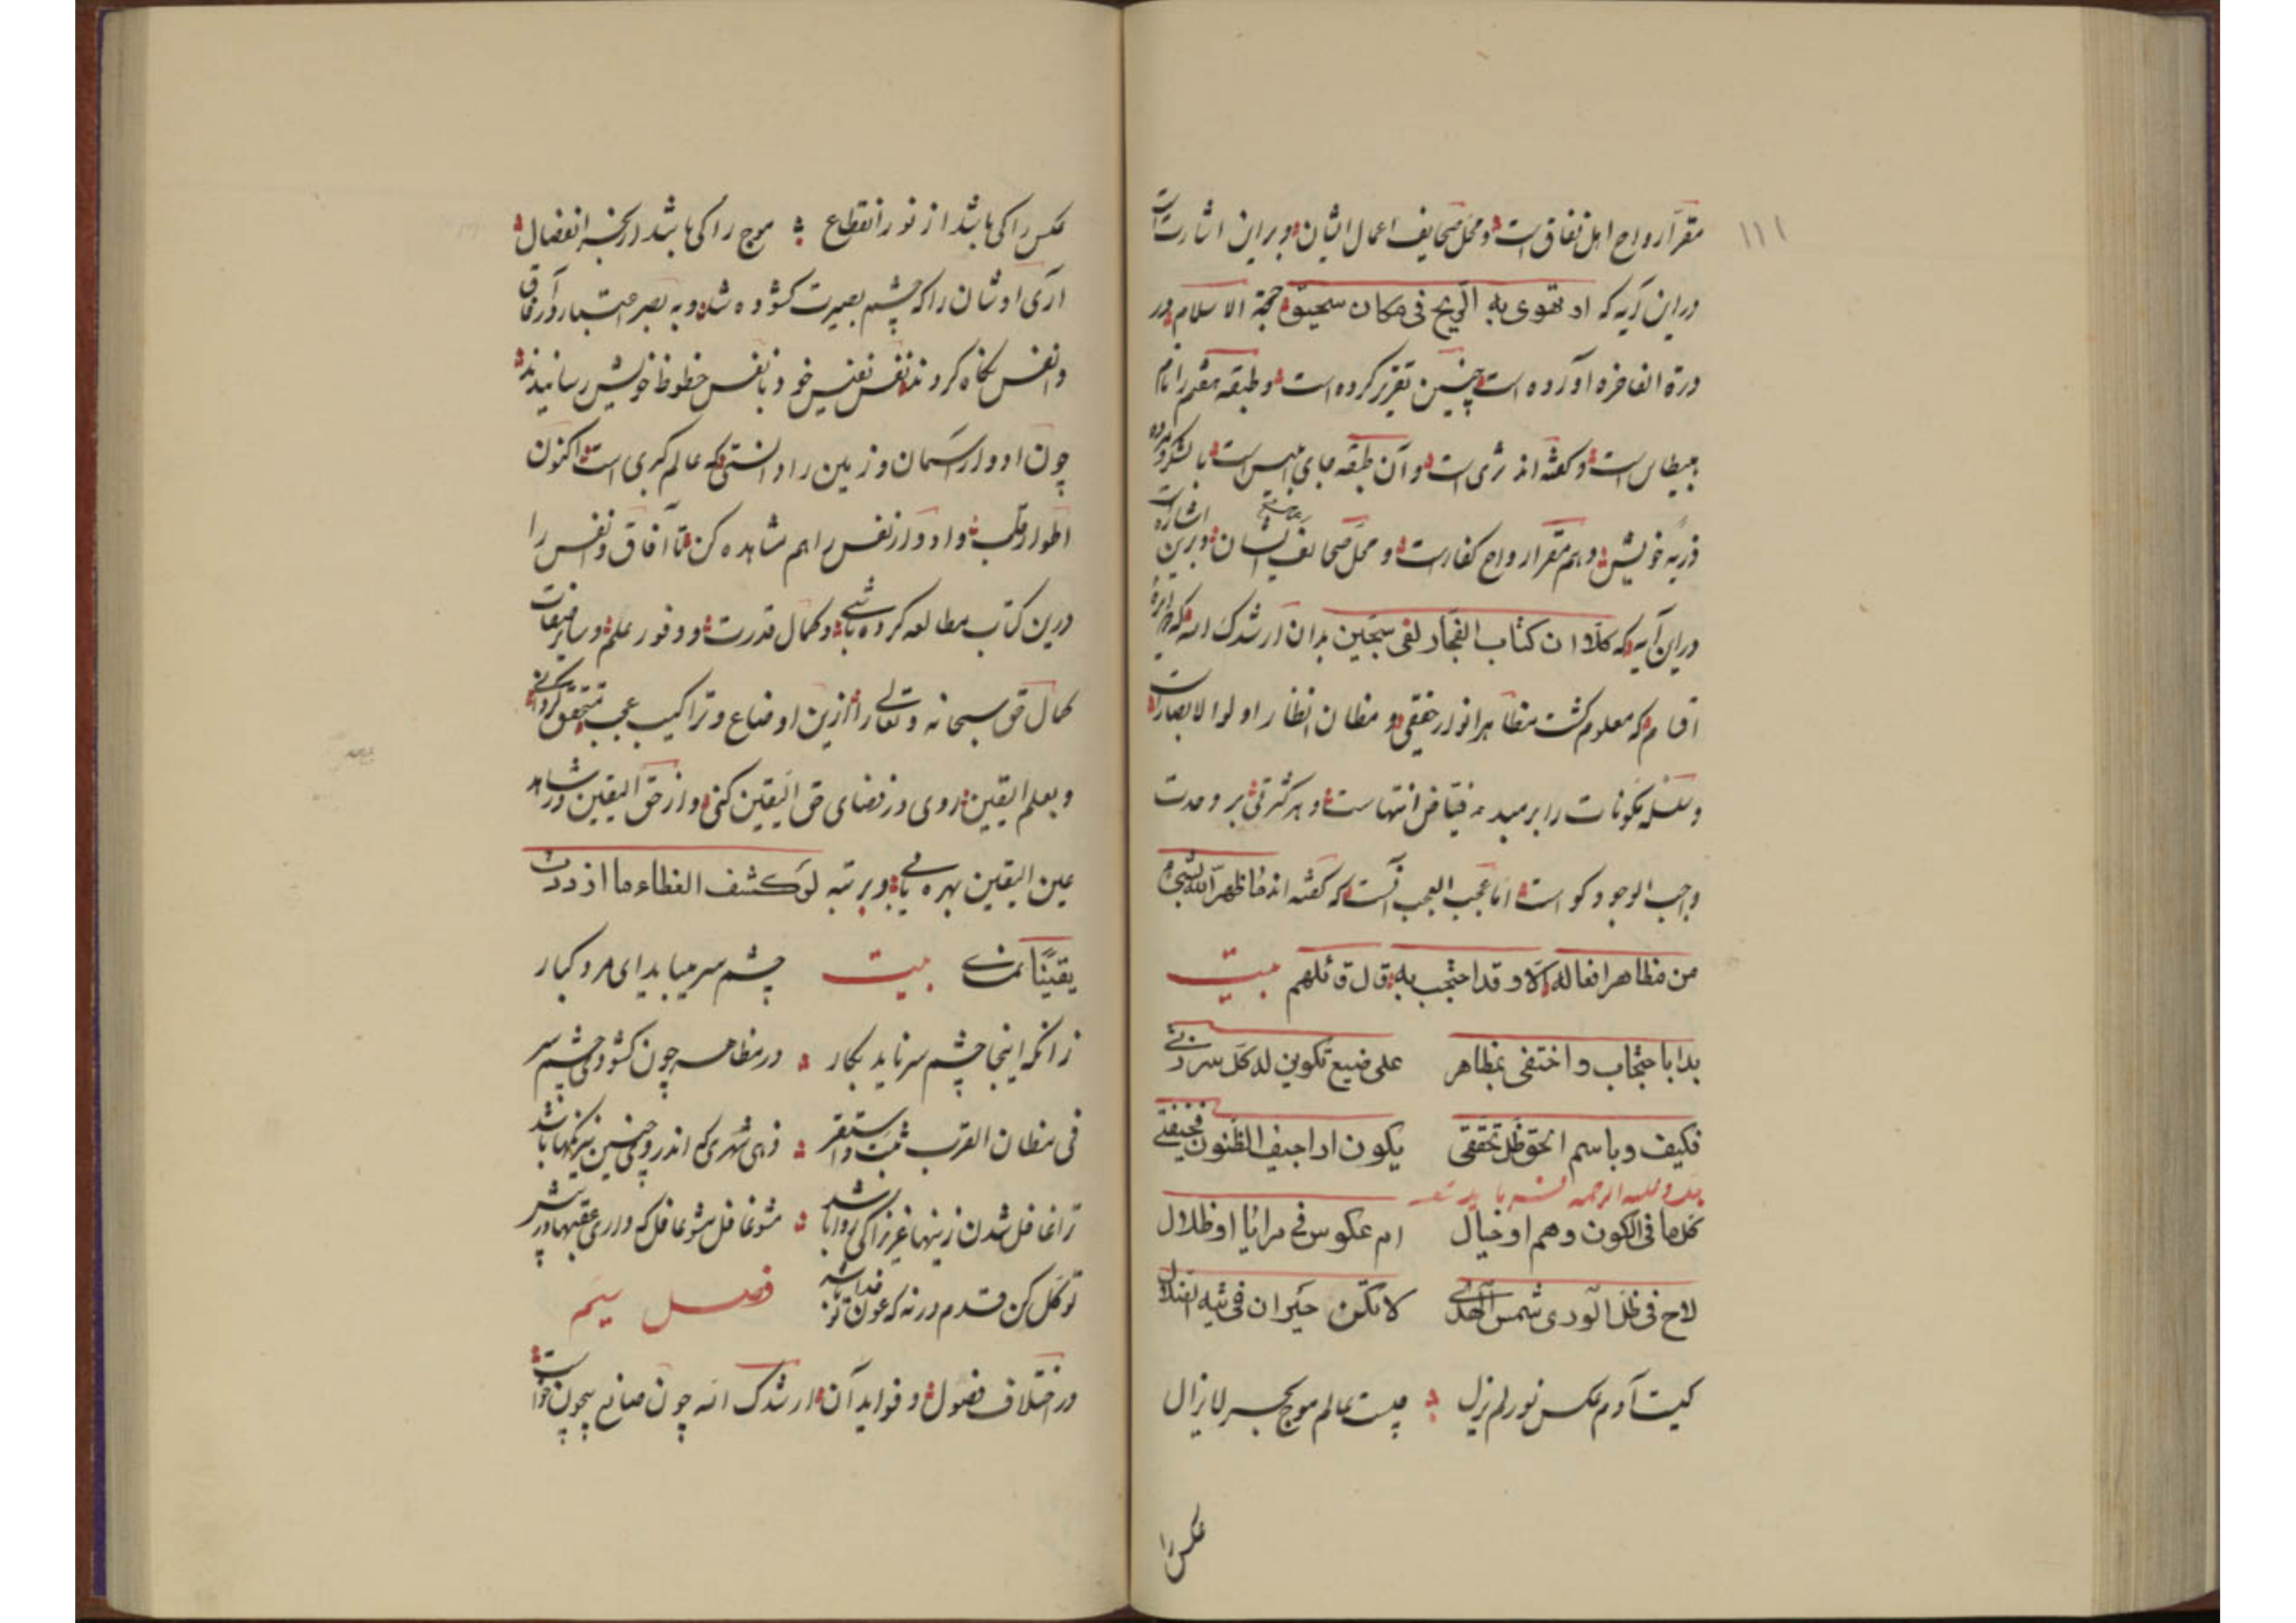 ۱۱۱
مقر ارواح اهل نفاق است و محل صحایف اعمال ایشان و بر این اشارت است
در این آیه که او تهوی به الریح فی مکان سحیق حجة الاسلام در
درة الفاخره آورده است چنین تقریر کرده است و طبقه هفتم را نام
است و گفته اند ثری است و آن طبقه جای ابلیس است با لشکر و مرده
ذریه خویش و هم مقر ارواح کفار است و محل صحایف ایشان و برین اشارت
در این آیه که کلا ان کتاب الفجار لفی سجین بدان ارشدک الله که
که معلوم گشت مظاهر انوار حقیقی و مظان انظار اولوا الابصار است
و سلسله مکونات را بر مبدء فیاض انتهاست و هر کثرتی بر وحدت
واجب الوجود گواست اما عجب العجب آنست که گفته اند ما ظهر الله بشیء
من مظاهر افعاله الا و قد احتجب به قال قائلهم بیت
بدا باحتجاب و اختفی بمظاهر علی صبغ تکوین لدکل
فکیف و باسم الحق ظل تحققی یکون اراجیف الظنون مخیفتی
کل ما فی الکون وهم او خیال ام عکوس فی مرایا او ظلال
لاح فی ظل الوری شمس الهدی لا تکن حیران فی تیه الضلال
کیست آدم عکس نور لم یزل چیست عالم موج بحر لا یزال
عکس را
عکس را کی باشد از نور انقطاع موج را کی باشد از بحر انفصال
آری اوشان را که چشم بصیرت گشوده شد و به بصر اعتبار در آفاق
و انفس نگاه کردند نفس نفیس خود بانفس حظوظ خویش رسانیدند
چون ادوار آسمان و زمین را دانستی که عالم کبری است اکنون
اطوار قلب و ادوار نفس را هم مشاهده کن تا آفاق و انفس را
درین کتاب مطالعه کرده باشی و کمال قدرت و وفور علم و سایر صفات
کمال حق سبحانه و تعالی را ازین اوضاع و تراکیب عجب متحقق گردانی
و بعلم الیقین روی در فضای حق الیقین کنی و از حق الیقین در مشاهد
عین الیقین بهره یابی و بر تبه لو کشف الغطاء ما ازددت
یقینا بیت چشم سر میباید ای مرد کبار
زانکه اینجا چشم سر ناید بکار در مظاهر چون گشودی چشم سر
فی مظان القرب ثبت و استقر زهی شهری که اندر وی چنین نیرنگها باشد
ترا غافل شدن زینها عزیزا کی روا باشد مشو غافل مشو غافل که داری عقبها در پیش
توکل کن قدم در نه که عون تو خدا باشد فصل سیم
در اختلاف فصول و فواید آن ارشدک الله چون صانع بیچون خواست